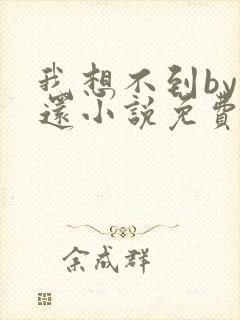 我想不到by
還小說免費
余成群